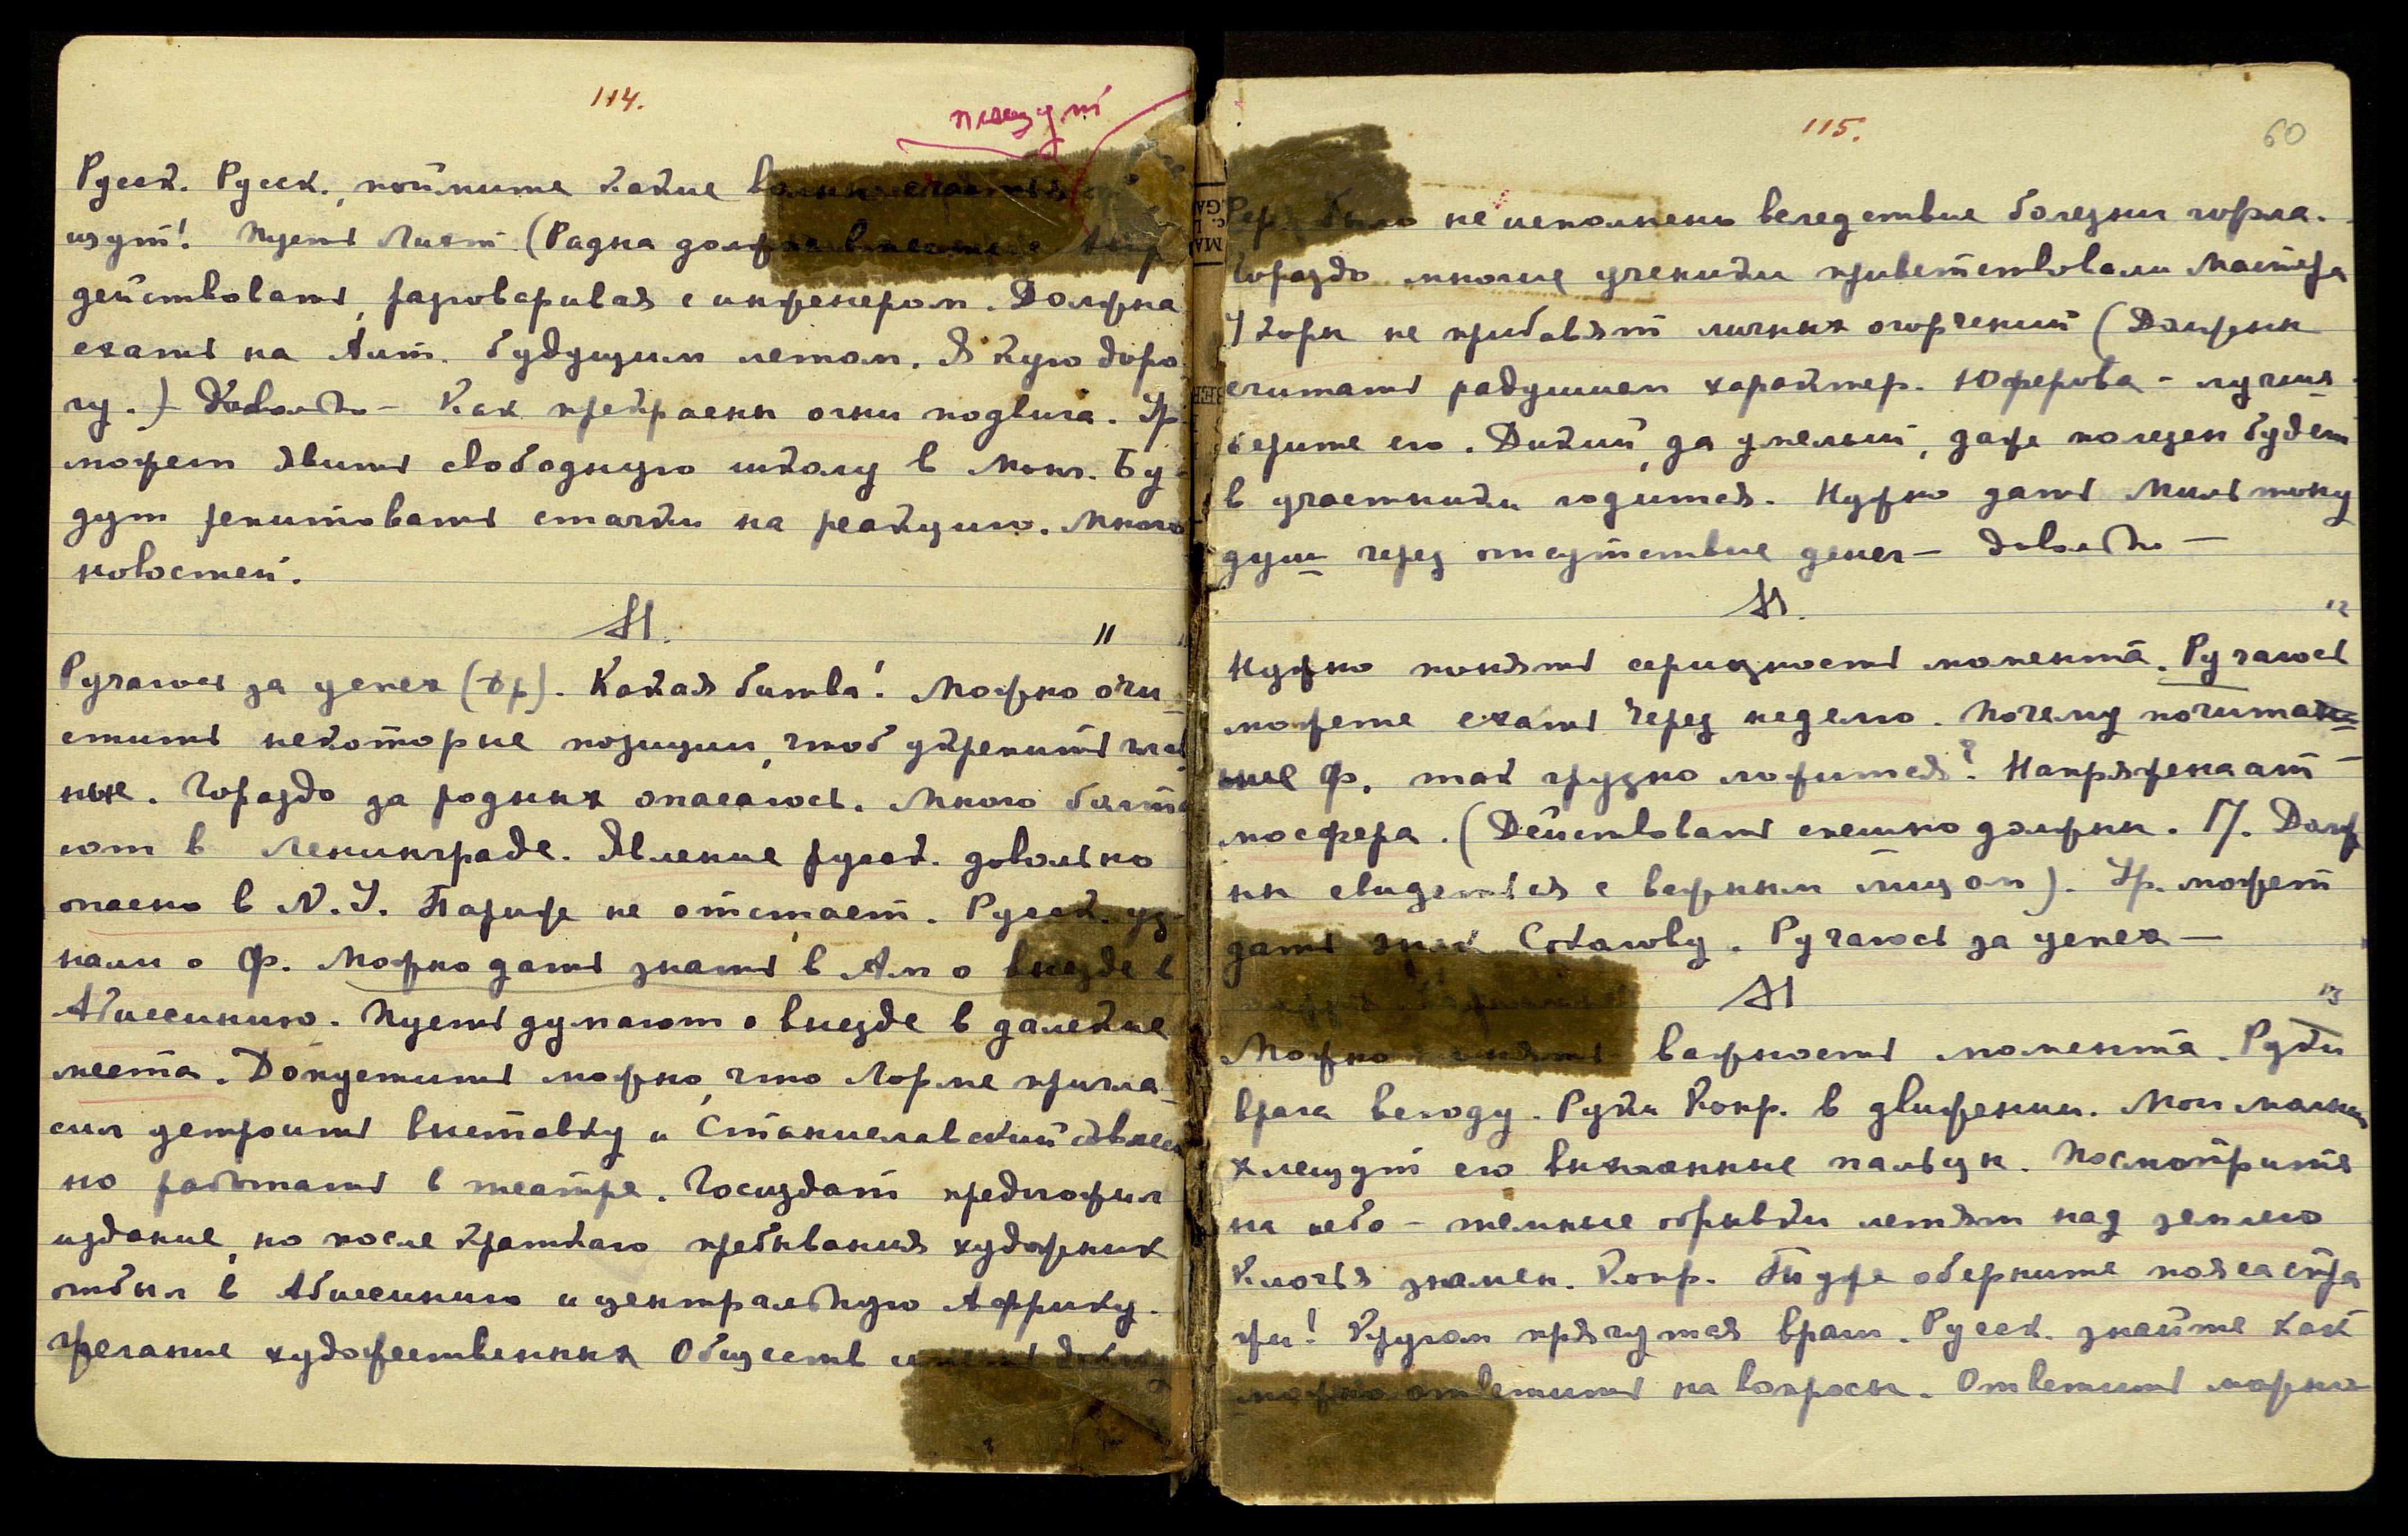 114.
плещут
Русск. Русск., поймите какие волны счастья
идут! Пусть Лист (Радна должна вместе
действовать, разговаривая с инженером. Должна
ехать на Алт. будущим летом. Я кую доро
гу.) Довольно — Как прекрасны огни подвига. Ур.
может явить свободную школу в Монг. Бу
дут репитовать стачки на реакцию. Много
новостей.
11
Ручаюсь за успех. Какая битва! Можно очи
стить некоторые позиции, чтоб укрепить глав
ные. Гораздо за родных опасаюсь. Много болта
ют в Ленинграде. Явление русск. довольно
опасно в N.Y. Париж не отстает. Русск. уз
нали о Ф. Можно дать знать в Ам о въезде в
Абиссинию. Пусть думают о въезде в далекие
места. Допустить можно, что Лорме пригла
сил устроить выставку и Станиславский
но работать в театре. Госиздат предложил
издание, но после краткаго пребывания художник
отбыл в Абиссинию и центральную Африку.
Желание художественных Обществ
115.
60
Рер. было не исполнено вследствие болезни горла.
Гораздо многие ученики приветствовали Мастера
Укоры не прибавят личных огорчений (Должны
считать радушием характер. Юферова – лучшая
берите его. Дикий, да умелый, даже полезен будет
в участники годится. Нужно дать Мильтону
душ через отсутствие денег — довольно —
12
Нужно понять серьезность момента. Ручаюсь
можете ехать через неделю. Почему почита
ние Ф. так грузно ложится? Напряжена ат
мосфера. (Действовать спешно должны. П. Долж
ны свидеться с важным лицом). Ур. может
дать знак Соколову. Ручаюсь за успех —
13
Можно понять важность момента. Руки
врага всюду. Руки Конр. в движении. Мои молнии
хлещут его пальцы. Посмотрите
на небо — темные обрывки летят над землею
Клочья знамен. Конр. Туже оберните пояса стра
жи! Кругом прячутся враги. Русск. знайте как
можно ответить на вопросы. Ответить можно